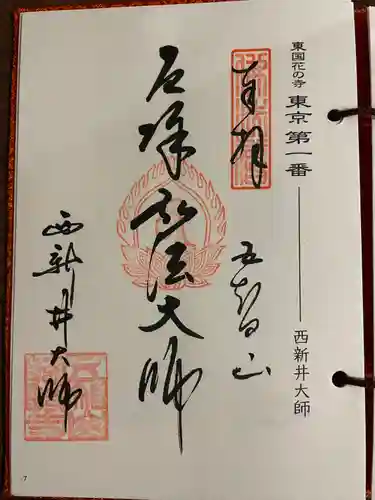 東国花の寺 東京第一番 ── 西新井大師
奉拝
五智山
厄除 弘法大師
西新井大師
7